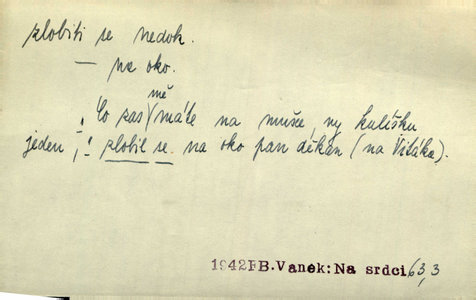 zlobiti se nedok.
— na oko.
mě
"Co zas máte na mušce, vy kulíšku
jeden," zlobil se na oko pan děkan (na Vitáka).
1942 F.B.Vaněk: Na srdci 63,3